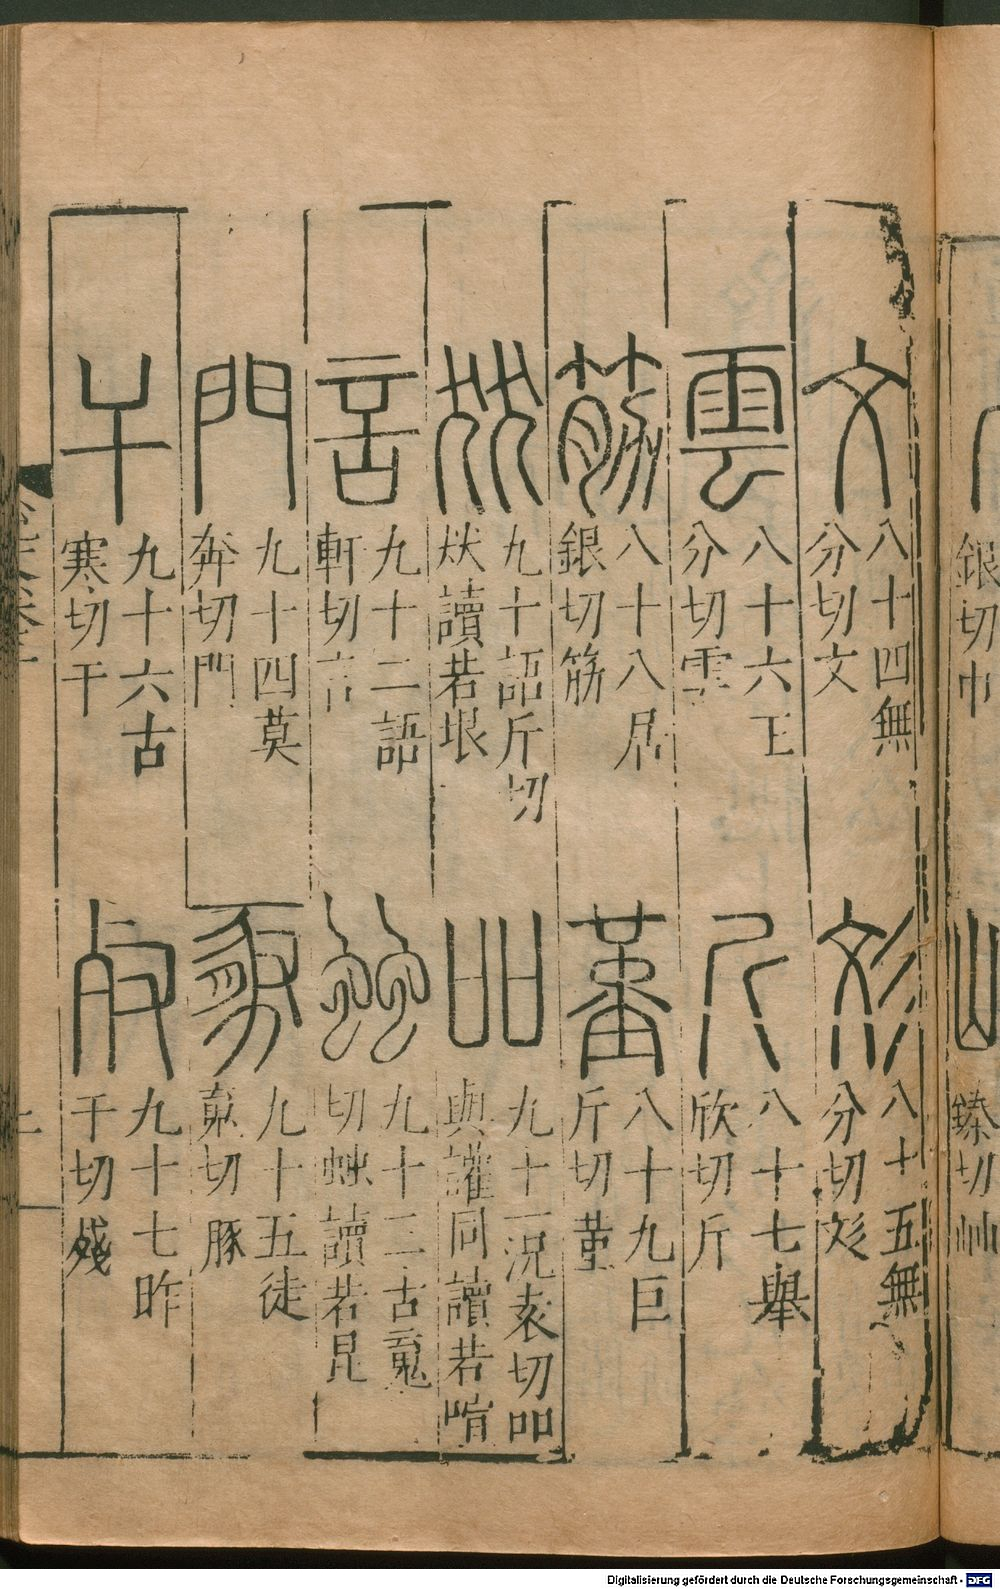 銀切巾
臻切
文
八十四無
分切文
彣
八十五無
分切彣
雲
八十六王
分切雲
斤
八十七舉
欣切斤
筋
八十八居
銀切筋
堇
八十九巨
斤切堇
㹜
九十語斤切
㹜讀若垠
吅
九十一況袁切吅
與讙同讀若
言
九十二語
軒切言
䖵
九十三古䰟
切䖵讀若昆
門
九十四莫
奔切門
豚
九十五徒
䰟切豚
干
九十六古
寒切干
𣦼
九十七昨
干切殘
Digitalisierung gefördert durch die Deutsche Forschungsgemeinschaft - DFG